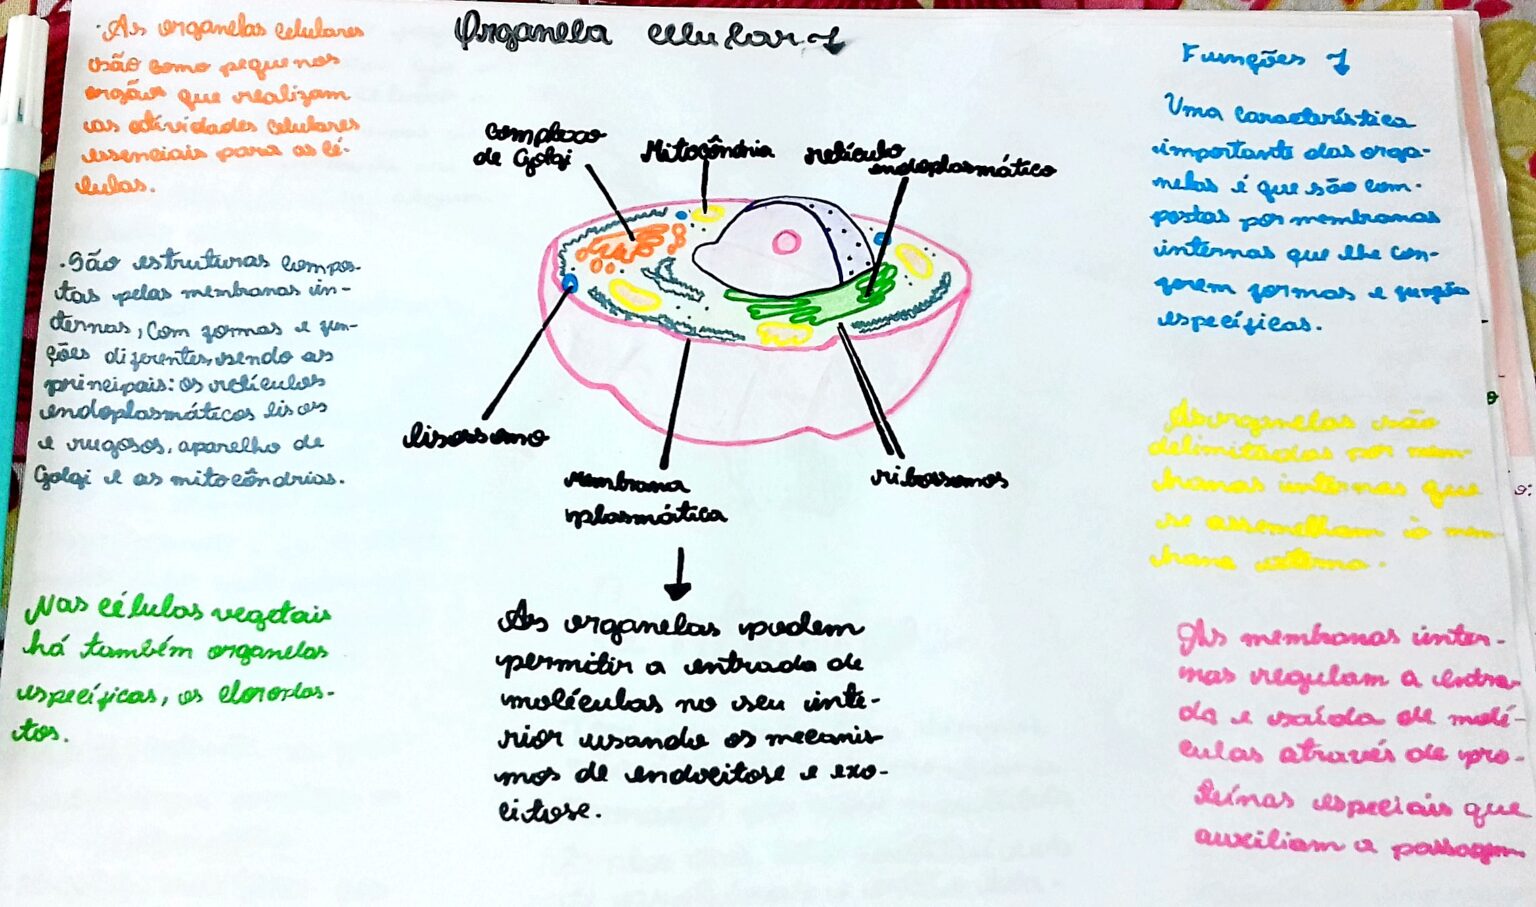 Organela celular
· As organelas celulares
são como pequenos
orgãos que realizam
as atividades celulares
essenciais para as cé-
lulas.
· São estruturas compos-
tas pelas membranas in-
ternas, com formas e fun-
ções diferentes, sendo as
principais: os retículos
endoplasmáticos lisos
e rugosos, aparelho de
Golgi e as mitocôndrias.
Nas células vegetais
há também organelas
específicas, os cloroplas-
tos.
Complexo
de Golgi
Mitocôndria
retículo
endoplasmático
lisossomo
Membrana
plasmática
ribossomos
As organelas podem
permitir a entrada de
moléculas no seu inte-
rior usando os mecanis-
mos de endocitose e exo-
citose.
Funções
Uma característica
importante das orga-
nelas é que são com-
postas por membranas
internas que lhe con-
ferem formas e função
específicas.
As organelas são
delimitadas por mem-
branas internas que
se assemelham à mem-
brana externa.
As membranas inter-
nas regulam a entra-
da e saída de molé-
culas através de pro-
teínas especiais que
auxiliam a passagem